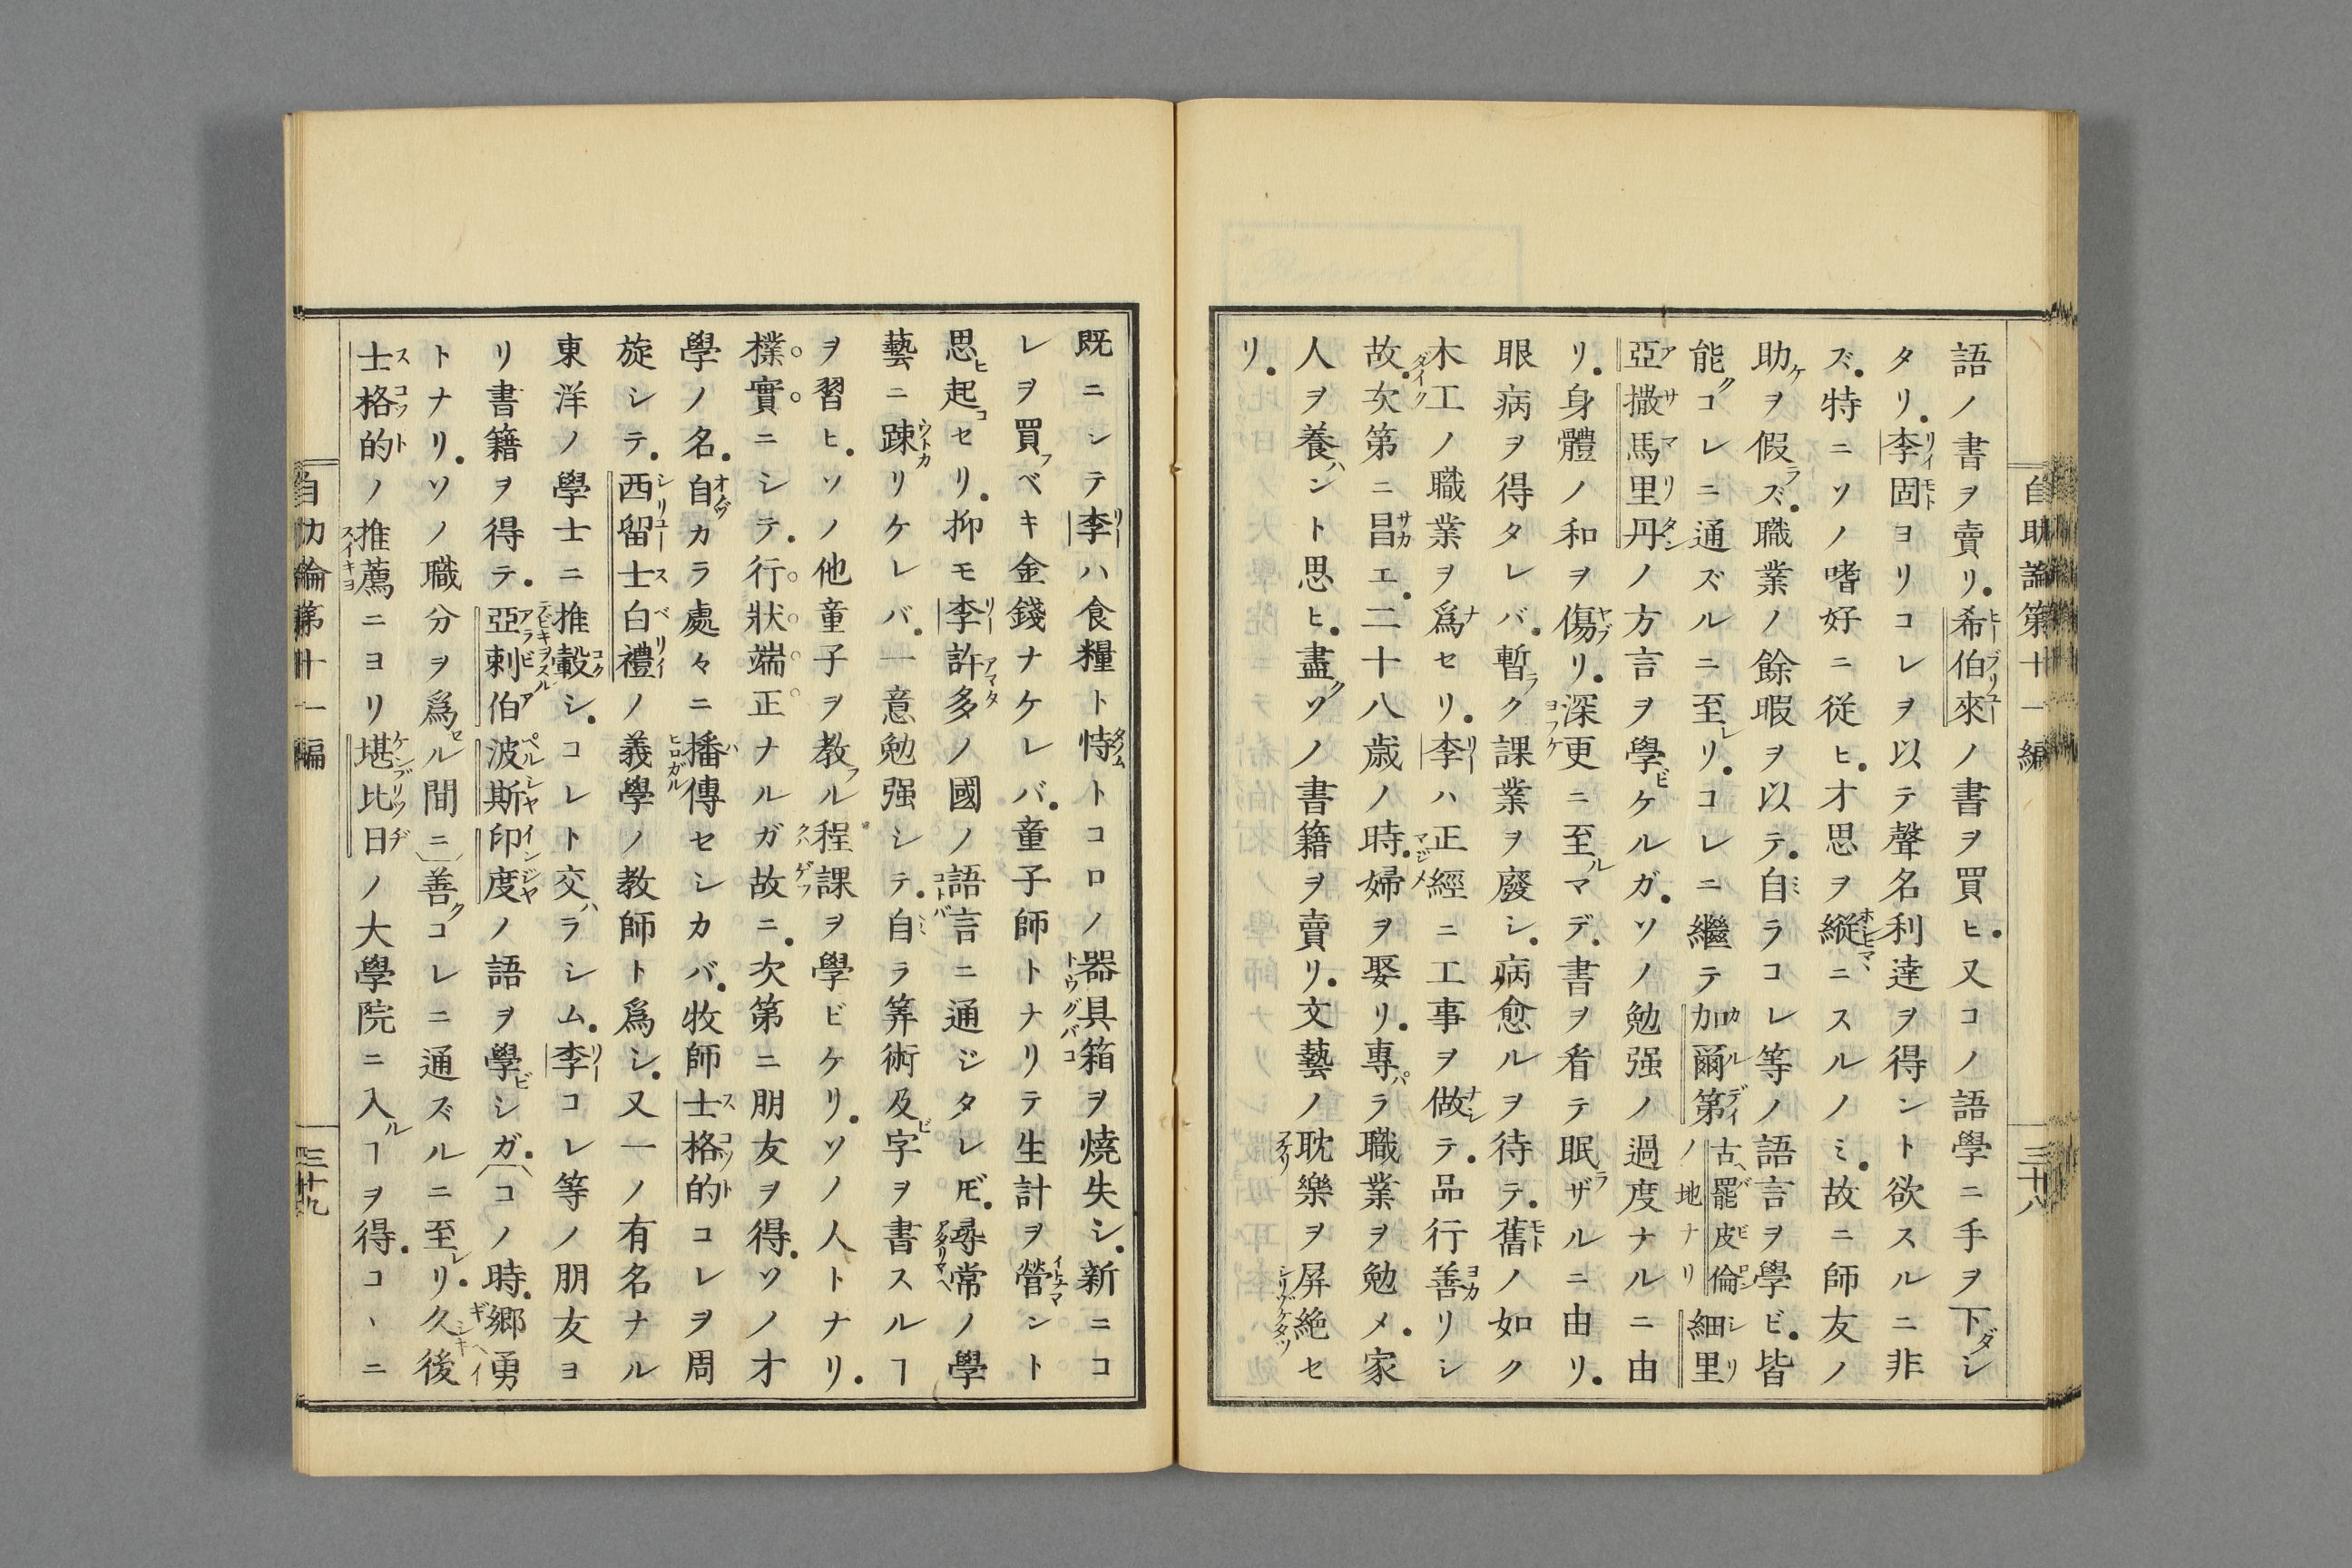 自助論第十一編
三十八
語ノ書ヲ賣リ。希伯來ノ書ヲ買ヒ。又コノ語學ニ手ヲ下シ
タリ。李固ヨリコレヲ以テ聲名利達ヲ得ント欲スルニ非
ズ。特ニソノ嗜好ニ從ヒ。才思ヲ縱ニスルノミ。故ニ師友ノ
助ヲ假ズ。職業ノ餘暇ヲ以テ。自ラコレ等ノ語言ヲ學ビ。皆
能コレニ通ズルニ至リ。コレニ繼テ加爾第古罷皮倫ノ地ナリ細里
亞撒馬里丹ノ方言ヲ學ビケルガ。ソノ勉强ノ過度ナルニ由
リ。身體ノ和ヲ傷リ。深更ニ至マデ。書ヲ看テ眠ザルニ由リ。
眼病ヲ得タレバ。暫ク課業ヲ廢シ。病愈ルヲ待テ。舊ノ如ク
木工ノ職業ヲ爲セリ。李ハ正經ニ工事ヲ做テ。品行善リシ
故。次第ニ昌エ。二十八歳ノ時。婦ヲ娶リ。專ラ職業ヲ勉メ。家
人ヲ養ント思ヒ。盡クソノ書籍ヲ賣リ。文藝ノ耽樂ヲ屏絶セ
リ。
既ニシテ李ハ食糧ト恃トコロノ器具箱ヲ燒失シ。新ニコ
レヲ買ベキ金錢ナケレバ。童子師トナリテ生計ヲ營ント
思起セリ。抑モ李許多ノ國ノ語言ニ通ジタレ𪜈。尋常ノ學
藝ニ踈リケレバ。一意勉强シテ。自ラ筭術及字ヲ書スルヿ
ヲ習ヒ。ソノ他童子ヲ教ル程課ヲ學ビケリ。ソノ人トナリ。
樸實ニシテ。行狀端正ナルガ故ニ。次第ニ朋友ヲ得。ソノ才
學ノ名。自カラ處々ニ播傳セシカバ。牧師士格的コレヲ周
旋シテ。西留士白禮ノ義學ノ教師ト爲シ。又一ノ有名ナル
東洋ノ學士ニ推轂シ。コレト交ラシム。李コレ等ノ朋友ヨ
リ書籍ヲ得テ。亞剌伯波斯印度ノ語ヲ學シガ。コノ時。鄉勇
トナリ。ソノ職分ヲ爲ル間ニ善コレニ通ズルニ至リ。久後
士格的ノ推薦ニヨリ堪比日ノ大學院ニ入ヿヲ得。コヽニ
自助論第十一編
三十九